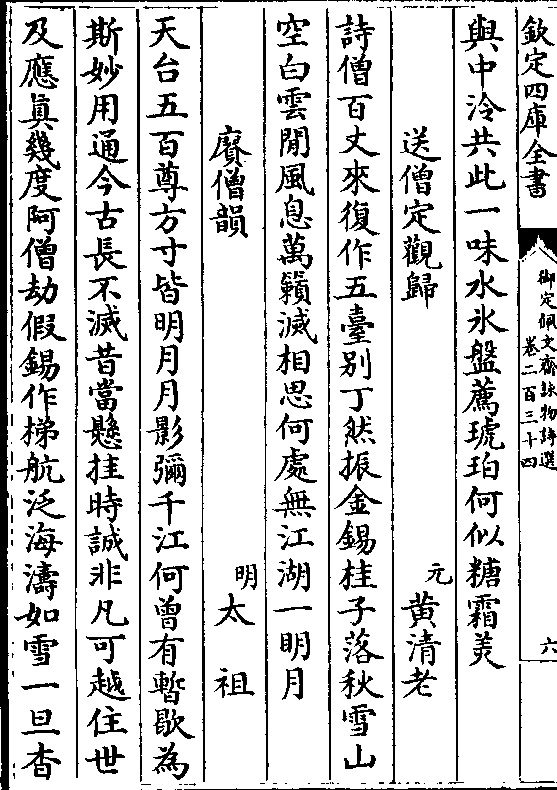 欽定四庫全書
御定佩文齋詠物詩選
卷二百三十四
六
與中泠共此一味水氷盤薦琥珀何似糖霜美
送僧定觀歸
元
黃清老
詩僧百丈來復作五臺别丁然振金錫桂子落秋雪山
空白雲閒風息萬籟滅相思何處無江湖一明月
賡僧韻
明
太祖
天台五百尊方寸皆明月月影彌千江何曾有暫歇為
斯妙用通今古長不滅昔當懸挂時誠非凡可越住世
及應眞幾度阿僧劫假錫作梯航泛海濤如雪一旦杳